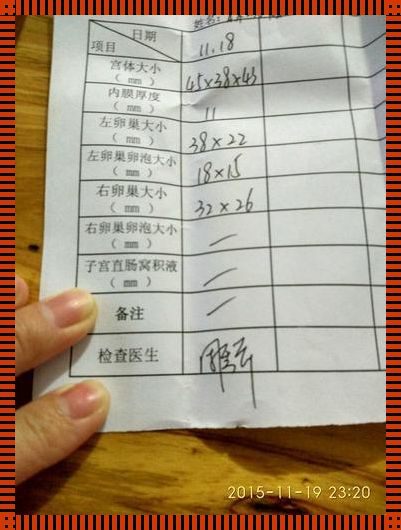 姓名:
日期
项目
11.18
宫体大小
( mm )
45×38×43
内膜厚度
( mm )
11
左卵巢大小
( mm )
38×22
左卵巢卵泡大小
( mm )
18×15
右卵巢大小
( mm )
32×26
右卵巢卵泡大小
( mm )
—
子宫直肠窝积液
( mm )
—
备注
—
检查医生
2015-11-19 23:20